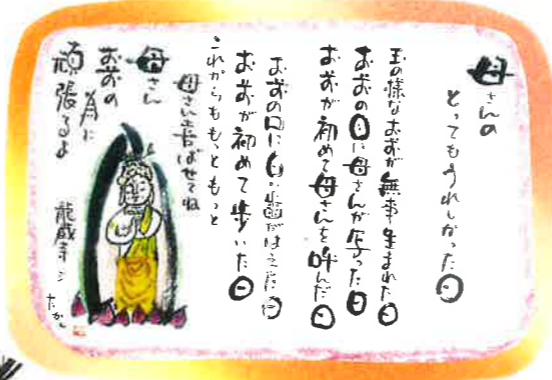 母さんの
とってもうれしかった日
玉の様なおまえが無事生まれた日
おまえの目に母さんが写った日
おまえが初めて母さんを呼んだ日
おまえの口に白い歯がはえた日
おまえが初めて歩いた日
これからももっともっと
母さん喜ばせてね
母さん
おまえの
為に
頑張るよ
龍蔵寺
たかし